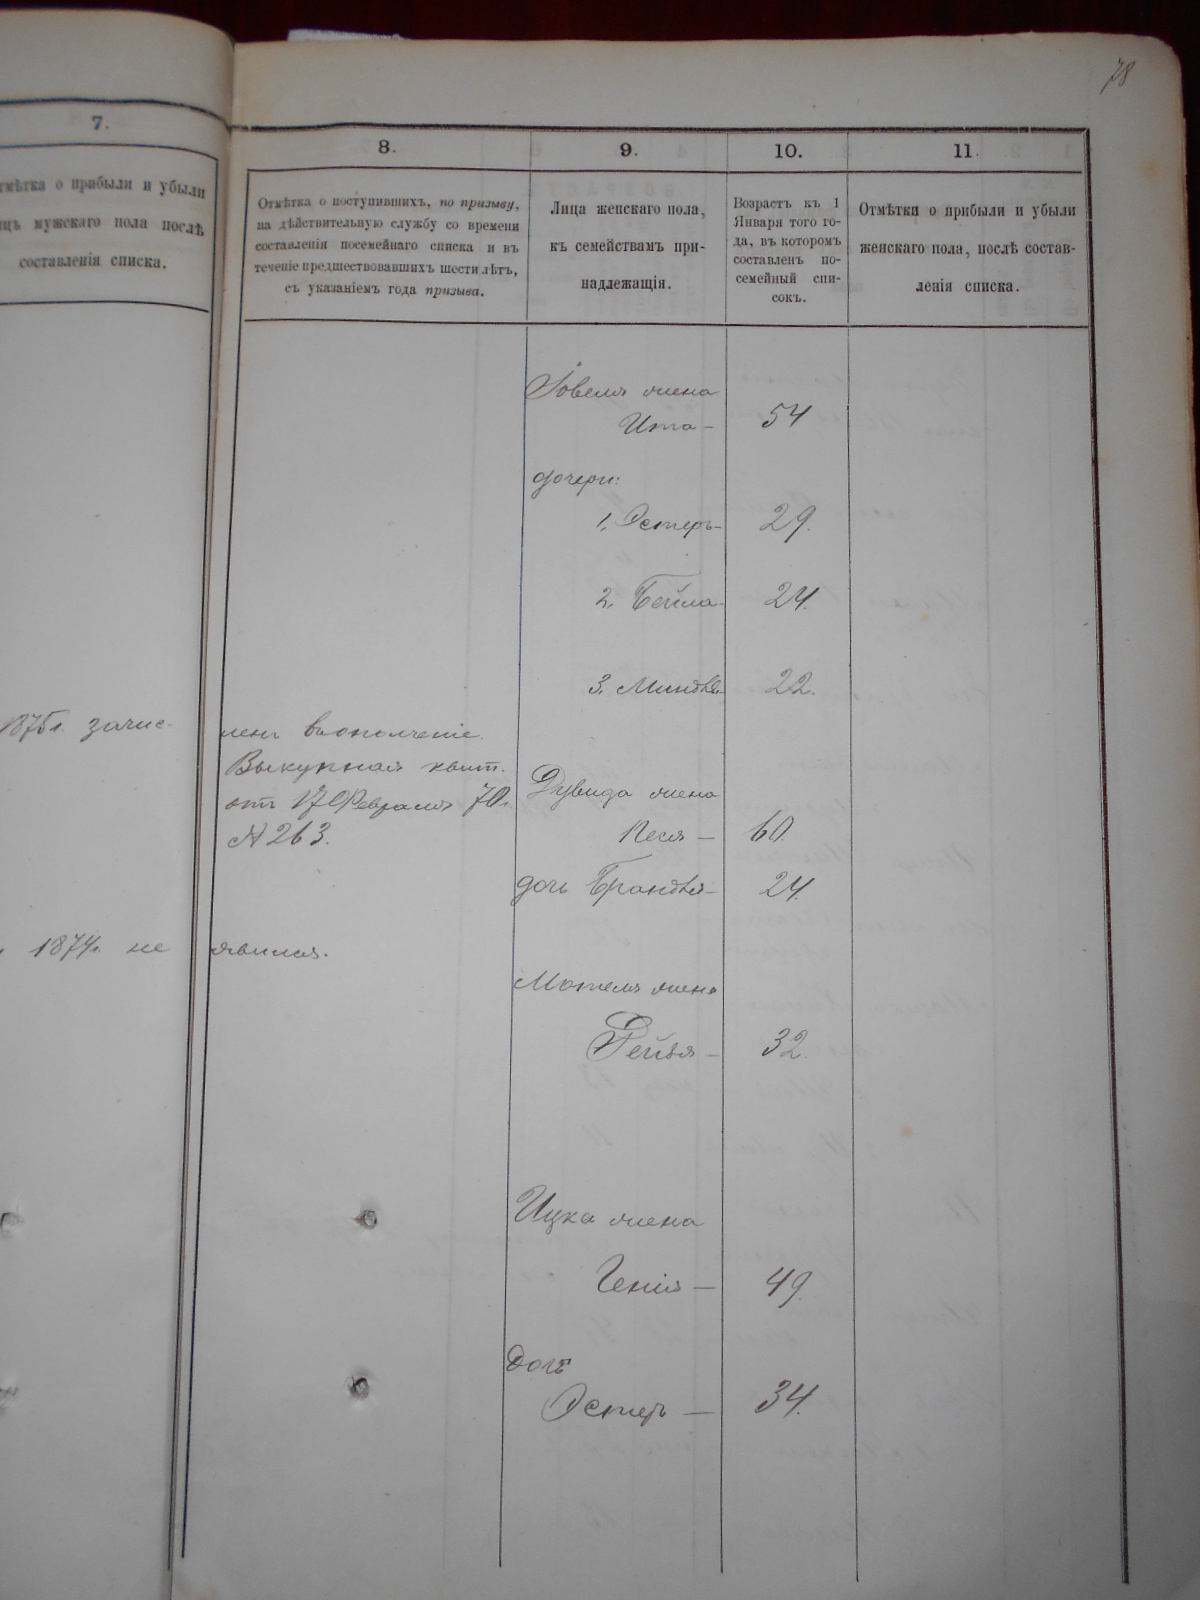 78
7.
тмѣтка о прибыли и убыли
ицъ мужскаго пола послѣ
составленія списка.
8.
Отмѣтка о поступившихъ, по призыву,
на дѣйствительную службу со времени
составленія посемейнаго списка и въ
теченіе предшествовавшихъ шести лѣтъ,
съ указаніемъ года призыва.
9.
Лица женскаго пола,
къ семействамъ при-
надлежащія.
10.
Возрастъ къ 1
Января того го-
да, въ которомъ
составленъ по-
семейный спи-
сокъ.
11.
Отмѣтки о прибыли и убыли
женскаго пола, послѣ состав-
ленія списка.
Іовеля жена
Ита — 54
дочери:
1. Эстеръ — 29.
2. Бейла — 24.
3. Миндля 22.
1875 г. зачис- ленъ въ ополченіе.
Выкупная квит.
отъ 17 Февраля 70 г.
№ 263.
Дувида жена
Песя — 60.
дочь Брандля — 24.
1874 г. не явился.
Мотеля жена
Фейга — 32.
Ицка жена
Генія — 49.
Дочь
Эстеръ — 34.